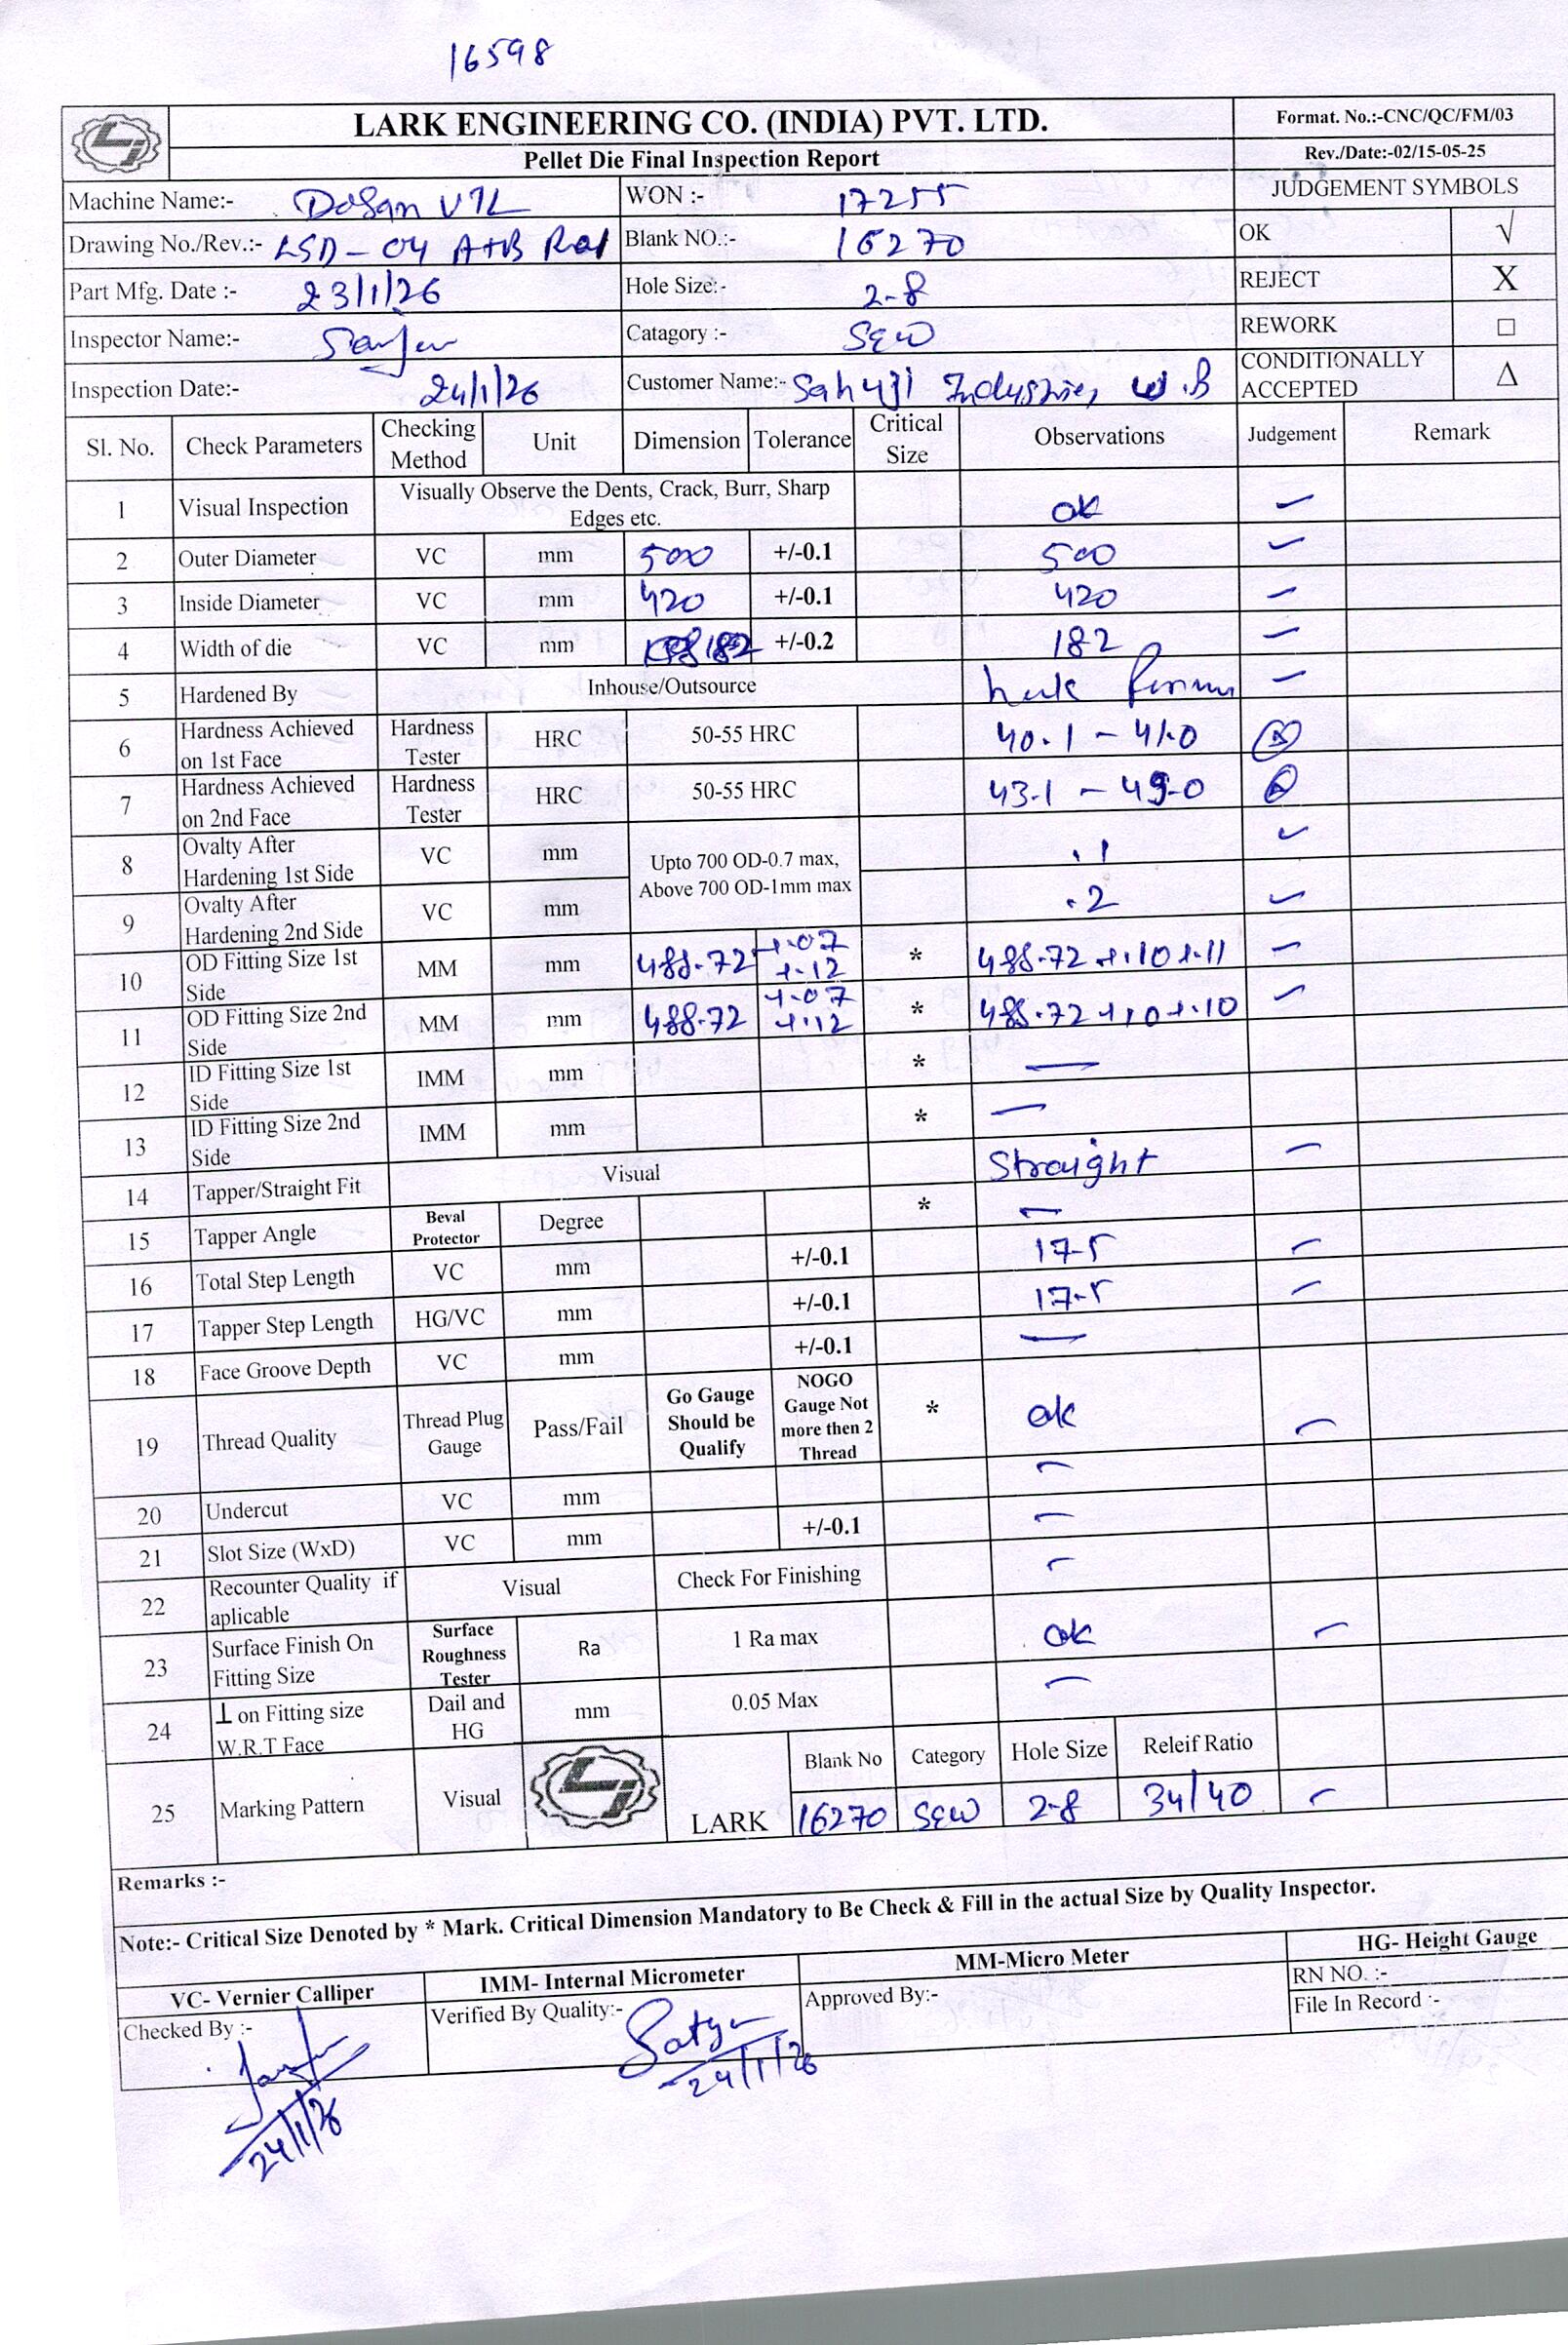 16598
LARK ENGINEERING CO. (INDIA) PVT. LTD. Format. No.:-CNC/QC/FM/03
Pellet Die Final Inspection Report Rev./Date:-02/15-05-25
Machine Name:- DoSan VTL WON :- 17255 JUDGEMENT SYMBOLS
Drawing No./Rev.:- LSD-04 A+B Blank NO.:- 16270 OK √
Part Mfg. Date :- 23/1/26 Hole Size:- 2-8 REJECT X
Inspector Name:- Catagory :- SEW REWORK □
Inspection Date:- 24/1/26 Customer Name:- Sahuji Industries, W.B CONDITIONALLY ACCEPTED Δ
Sl. No. Check Parameters Checking Method Unit Dimension Tolerance Critical Size Observations Judgement Remark
1 Visual Inspection Visually Observe the Dents, Crack, Burr, Sharp Edges etc. ok
2 Outer Diameter VC mm 500 +/-0.1 500
3 Inside Diameter VC mm 420 +/-0.1 420
4 Width of die VC mm 182 +/-0.2 182
5 Hardened By Inhouse/Outsource
6 Hardness Achieved on 1st Face Hardness Tester HRC 50-55 HRC 40.1 - 41.0
7 Hardness Achieved on 2nd Face Hardness Tester HRC 50-55 HRC 43.1 -
8 Ovalty After Hardening 1st Side VC mm Upto 700 OD-0.7 max, Above 700 OD-1mm max .1
9 Ovalty After Hardening 2nd Side VC mm .2
10 OD Fitting Size 1st Side MM mm 488.72 +.07 +.12 * 488.72 +.10 +.11
11 OD Fitting Size 2nd Side MM mm 488.72 +.07 +.12 * 488.72 +.10
12 ID Fitting Size 1st Side IMM mm * —
13 ID Fitting Size 2nd Side IMM mm * —
14 Tapper/Straight Fit Visual Straight
15 Tapper Angle Beval Protector Degree * —
16 Total Step Length VC mm +/-0.1 17.5
17 Tapper Step Length HG/VC mm +/-0.1 17.5
18 Face Groove Depth VC mm +/-0.1 —
19 Thread Quality Thread Plug Gauge Pass/Fail Go Gauge Should be Qualify NOGO Gauge Not more then 2 Thread * ok
20 Undercut VC mm —
21 Slot Size (WxD) VC mm +/-0.1 —
22 Recounter Quality if aplicable Visual Check For Finishing —
23 Surface Finish On Fitting Size Surface Roughness Tester Ra 1 Ra max ok
24 ⊥ on Fitting size W.R.T Face Dail and HG mm 0.05 Max —
25 Marking Pattern Visual LARK Blank No Category Hole Size Releif Ratio
16270 SEW 2-8 34/40
Remarks :-
Note:- Critical Size Denoted by * Mark. Critical Dimension Mandatory to Be Check & Fill in the actual Size by Quality Inspector.
VC- Vernier Calliper IMM- Internal Micrometer MM-Micro Meter HG- Height Gauge
Checked By :- Verified By Quality:- Satyu Approved By:- RN NO. :-
File In Record :-
24/1/26 24/1/26